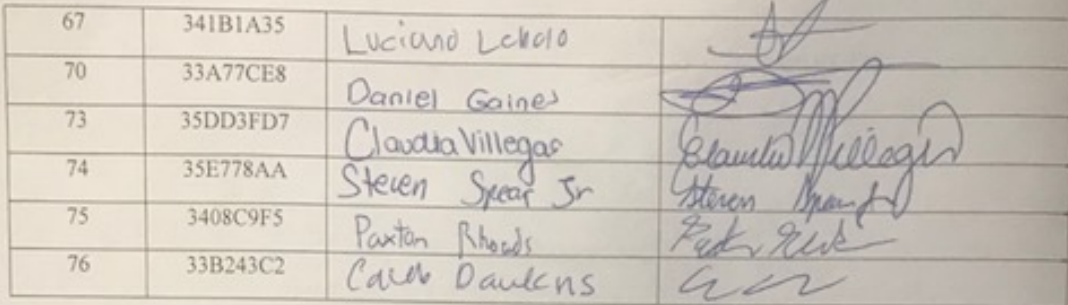 67 341B1A35 Luciano
70 33A77CE8 Daniel Gaines
73 35DD3FD7 Claudia Villegas Claudia Villegas
74 35E778AA Steven Spear Jr Steven Spear Jr
75 3408C9F5 Paxton Rhoads
76 33B243C2 Caleb Dawkins